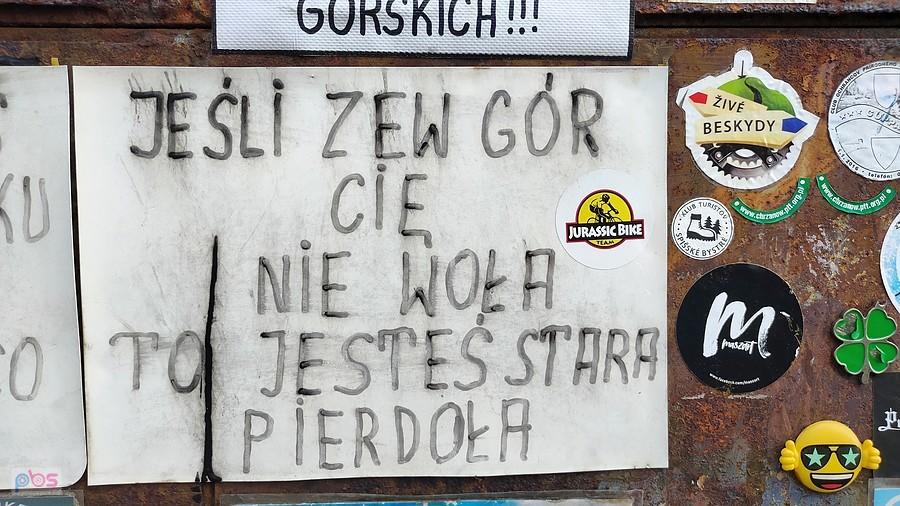 GÓRSKICH!!!
JEŚLI ZEW GÓR
CIĘ
NIE WOŁA
TO JESTEŚ STARA
PIERDOŁA
KU
CO
pbs
JURASSIC BIKE
TEAM
ŽIVÉ
BESKYDY
www.chrzanow.ptt.org.pl
www.chrzanow.ptt.org.pl
KLUB TURISTOV
SPIŠSKÉ BYSTRÉ
m